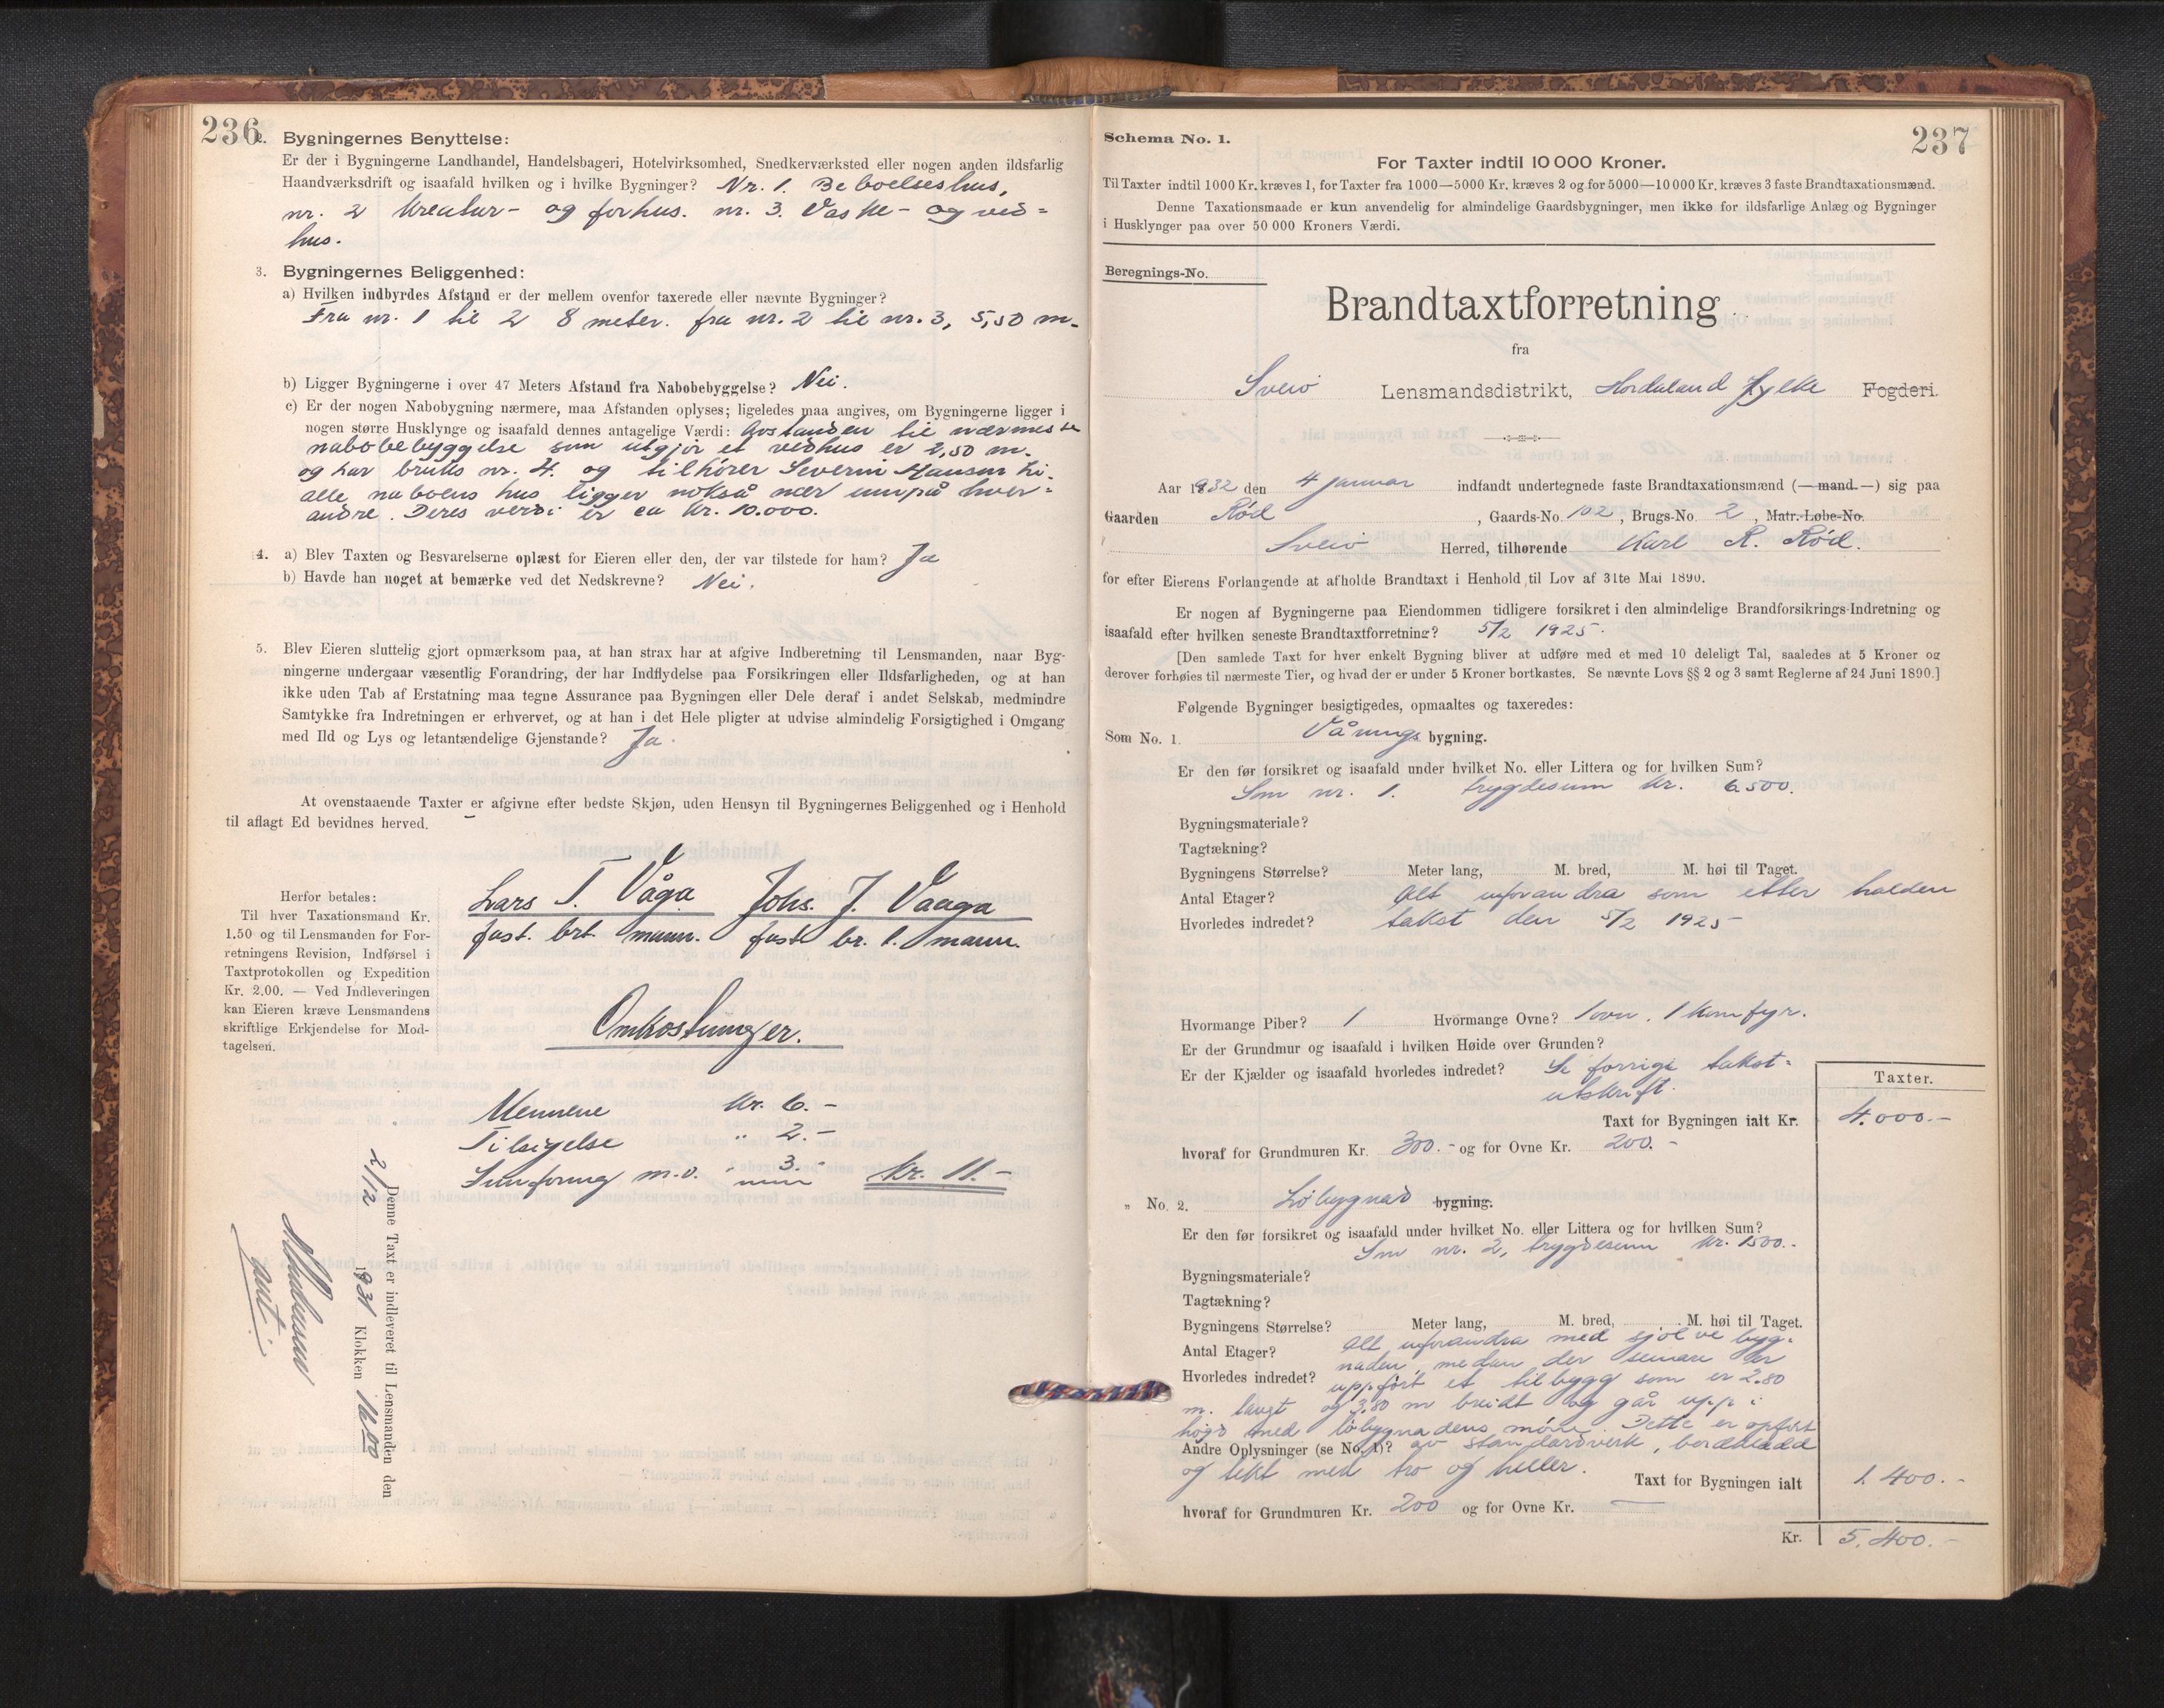 236
2. Bygningernes Benyttelse:
Er der i Bygningerne Landhandel, Handelsbageri, Hotelvirksomhed, Snedkerværksted eller nogen anden ildsfarlig
Haandværksdrift og isaafald hvilken og i hvilke Bygninger? Nr. 1. Beboelseshus,
nr. 2 Kreatur- og forhus. nr. 3. Vaske- og ved=
hus.
3. Bygningernes Beliggenhed:
a) Hvilken indbyrdes Afstand er der mellem ovenfor taxerede eller nævnte Bygninger?
Fra nr. 1 til 2 8 meter. fra nr. 2 til nr. 3, 5,50 m.
b) Ligger Bygningerne i over 47 Meters Afstand fra Nabobebyggelse? Nei.
c) Er der nogen Nabobygning nærmere, maa Afstanden oplyses; ligeledes maa angives, om Bygningerne ligger i
nogen større Husklynge og isaafald dennes antagelige Værdi: Avstanden til nærmeste
nabobebyggelse som utgjör et vedhus er 2,50 m.
og har bruks nr. 4. og tilhörer Severin Hansen
alle naboens hus ligger nokså nær innpå hver=
andre. Deres verdi er ca Kr. 10.000.
4. a) Blev Taxten og Besvarelserne oplæst for Eieren eller den, der var tilstede for ham? Ja
b) Havde han noget at bemærke ved det Nedskrevne? Nei.
5. Blev Eieren sluttelig gjort opmærksom paa, at han strax har at afgive Indberetning til Lensmanden, naar Byg-
ningerne undergaar væsentlig Forandring, der har Indflydelse paa Forsikringen eller Ildsfarligheden, og at han
ikke uden Tab af Erstatning maa tegne Assurance paa Bygningen eller Dele deraf i andet Selskab, medmindre
Samtykke fra Indretningen er erhvervet, og at han i det Hele pligter at udvise almindelig Forsigtighed i Omgang
med Ild og Lys og letantændelige Gjenstande? Ja.
At ovenstaaende Taxter er afgivne efter bedste Skjøn, uden Hensyn til Bygningernes Beliggenhed og i Henhold
til aflagt Ed bevidnes herved.
Lars T. Våga Johs. J. Vaaga
fast. brt. mann. fast br. t. mann.
Herfor betales:
Til hver Taxationsmand Kr.
1.50 og til Lensmanden for For-
retningens Revision, Indførsel i
Taxtprotokollen og Expedition
Kr. 2.00. — Ved Indleveringen
kan Eieren kræve Lensmandens
skriftlige Erkjendelse for Mod-
tagelsen.
Omkostninger.
Mennene Kr. 6.-
Tilsigelse " 2.-
Innföring m.v. " 3.- Kr. 11.-
Denne Taxt er indleveret til Lensmanden den
2/12 1931 Klokken 16.00
237
Schema No. 1.
For Taxter indtil 10 000 Kroner.
Til Taxter indtil 1000 Kr. kræves 1, for Taxter fra 1000—5000 Kr. kræves 2 og for 5000—10 000 Kr. kræves 3 faste Brandtaxationsmænd.
Denne Taxationsmaade er kun anvendelig for almindelige Gaardsbygninger, men ikke for ildsfarlige Anlæg og Bygninger
i Husklynger paa over 50 000 Kroners Værdi.
Beregnings-No.
Brandtaxtforretning
fra
Sveio Lensmandsdistrikt, Hordaland Fylke Fogderi.
Aar 1932 den 4 januar indfandt undertegnede faste Brandtaxationsmænd (—mand—) sig paa
Gaarden Röd, Gaards-No. 102, Brugs-No. 2, Matr.-Løbe-No.
Sveio Herred, tilhørende Karl R. Röd.
for efter Eierens Forlangende at afholde Brandtaxt i Henhold til Lov af 31te Mai 1890.
Er nogen af Bygningerne paa Eiendommen tidligere forsikret i den almindelige Brandforsikrings-Indretning og
isaafald efter hvilken seneste Brandtaxtforretning? 5/2 1925.
[Den samlede Taxt for hver enkelt Bygning bliver at udføre med et med 10 deleligt Tal, saaledes at 5 Kroner og
derover forhøies til nærmeste Tier, og hvad der er under 5 Kroner bortkastes. Se nævnte Lovs §§ 2 og 3 samt Reglerne af 24 Juni 1890.]
Følgende Bygninger besigtigedes, opmaaltes og taxeredes:
Som No. 1. Vånings bygning.
Er den før forsikret og isaafald under hvilket No. eller Littera og for hvilken Sum?
Som nr. 1. trygdesum Kr. 6.500.
Bygningsmateriale?
Tagtækning?
Bygningens Størrelse? Meter lang, M. bred, M. høi til Taget.
Antal Etager? Alt uforandra som etter halden
Hvorledes indredet? takst den 5/2 1925-
Hvormange Piber? 1 Hvormange Ovne? 1 ovn. 1 komfyr.
Er der Grundmur og isaafald i hvilken Høide over Grunden?
Er der Kjælder og isaafald hvorledes indredet? Se forrige takst=
utskrift.
Taxter.
Taxt for Bygningen ialt Kr. 4.000.-
hvoraf for Grundmuren Kr. 300.- og for Ovne Kr. 200.-
" No. 2. Löbygnad bygning.
Er den før forsikret og isaafald under hvilket No. eller Littera og for hvilken Sum?
Som nr. 2, trygdesum Kr. 1500.-
Bygningsmateriale?
Tagtækning?
Bygningens Størrelse? Meter lang, M. bred, M. høi til Taget.
Antal Etager? Alt uforandra med sjölve byg=
naden, medan der senare er
Hvorledes indredet? uppfört et tilbygg som er 2.80
m. langt og 3.80 m breidt og går upp i
högd med löbygnadens möne. Dette er opfört
Andre Oplysninger (se No. 1)? av standardverk, bordkledd
og tekt med tro og heller.
Taxt for Bygningen ialt 1.400.-
hvoraf for Grundmuren Kr. 200 og for Ovne Kr. —
Kr. 5.400.-